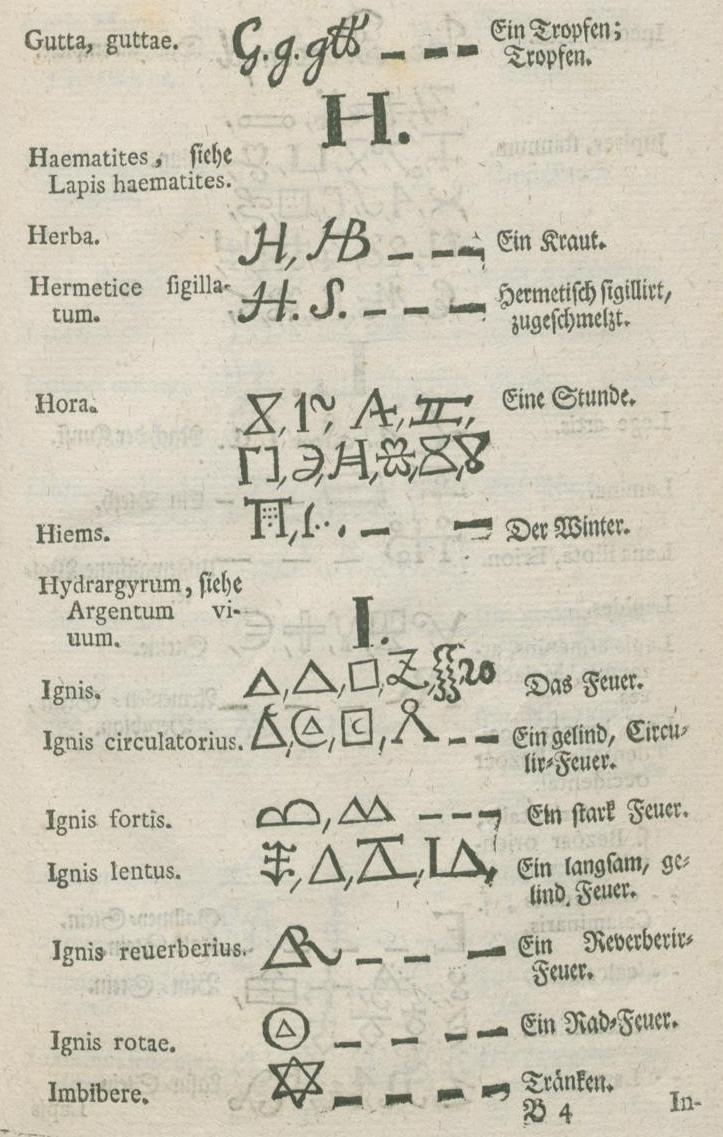 Gutta, guttae. G. g. gtt Ein Tropfen;
Tropfen.
H.
Haematites, ſiehe
Lapis haematites.
Herba. H, HB Ein Kraut.
Hermetice ſigilla- H. S. Hermetiſch ſigillirt,
tum. zugeſchmelzt.
Hora. Eine Stunde.
Hiems. Der Winter.
Hydrargyrum, ſiehe
Argentum vi-
uum.
I.
Ignis. △, △, □ Das Feuer.
Ignis circulatorius. Ein gelind, Circu-
lir-Feuer.
Ignis fortis. Ein ſtark Feuer.
Ignis lentus. Ein langſam, ge-
lind, Feuer.
Ignis reuerberius. Ein Reverberir-
Feuer.
Ignis rotae. Ein Rad-Feuer.
Imbibere. Tränken.
B 4 In-